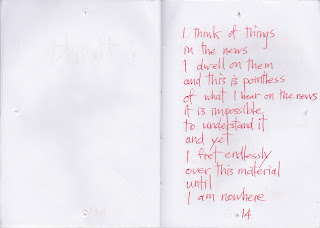 I think of things
in the news
I dwell on them
and this is pointless
of what I hear on the news
it is impossible
to understand it
and yet
I fret endlessly
over this material
until
I am nowhere
14